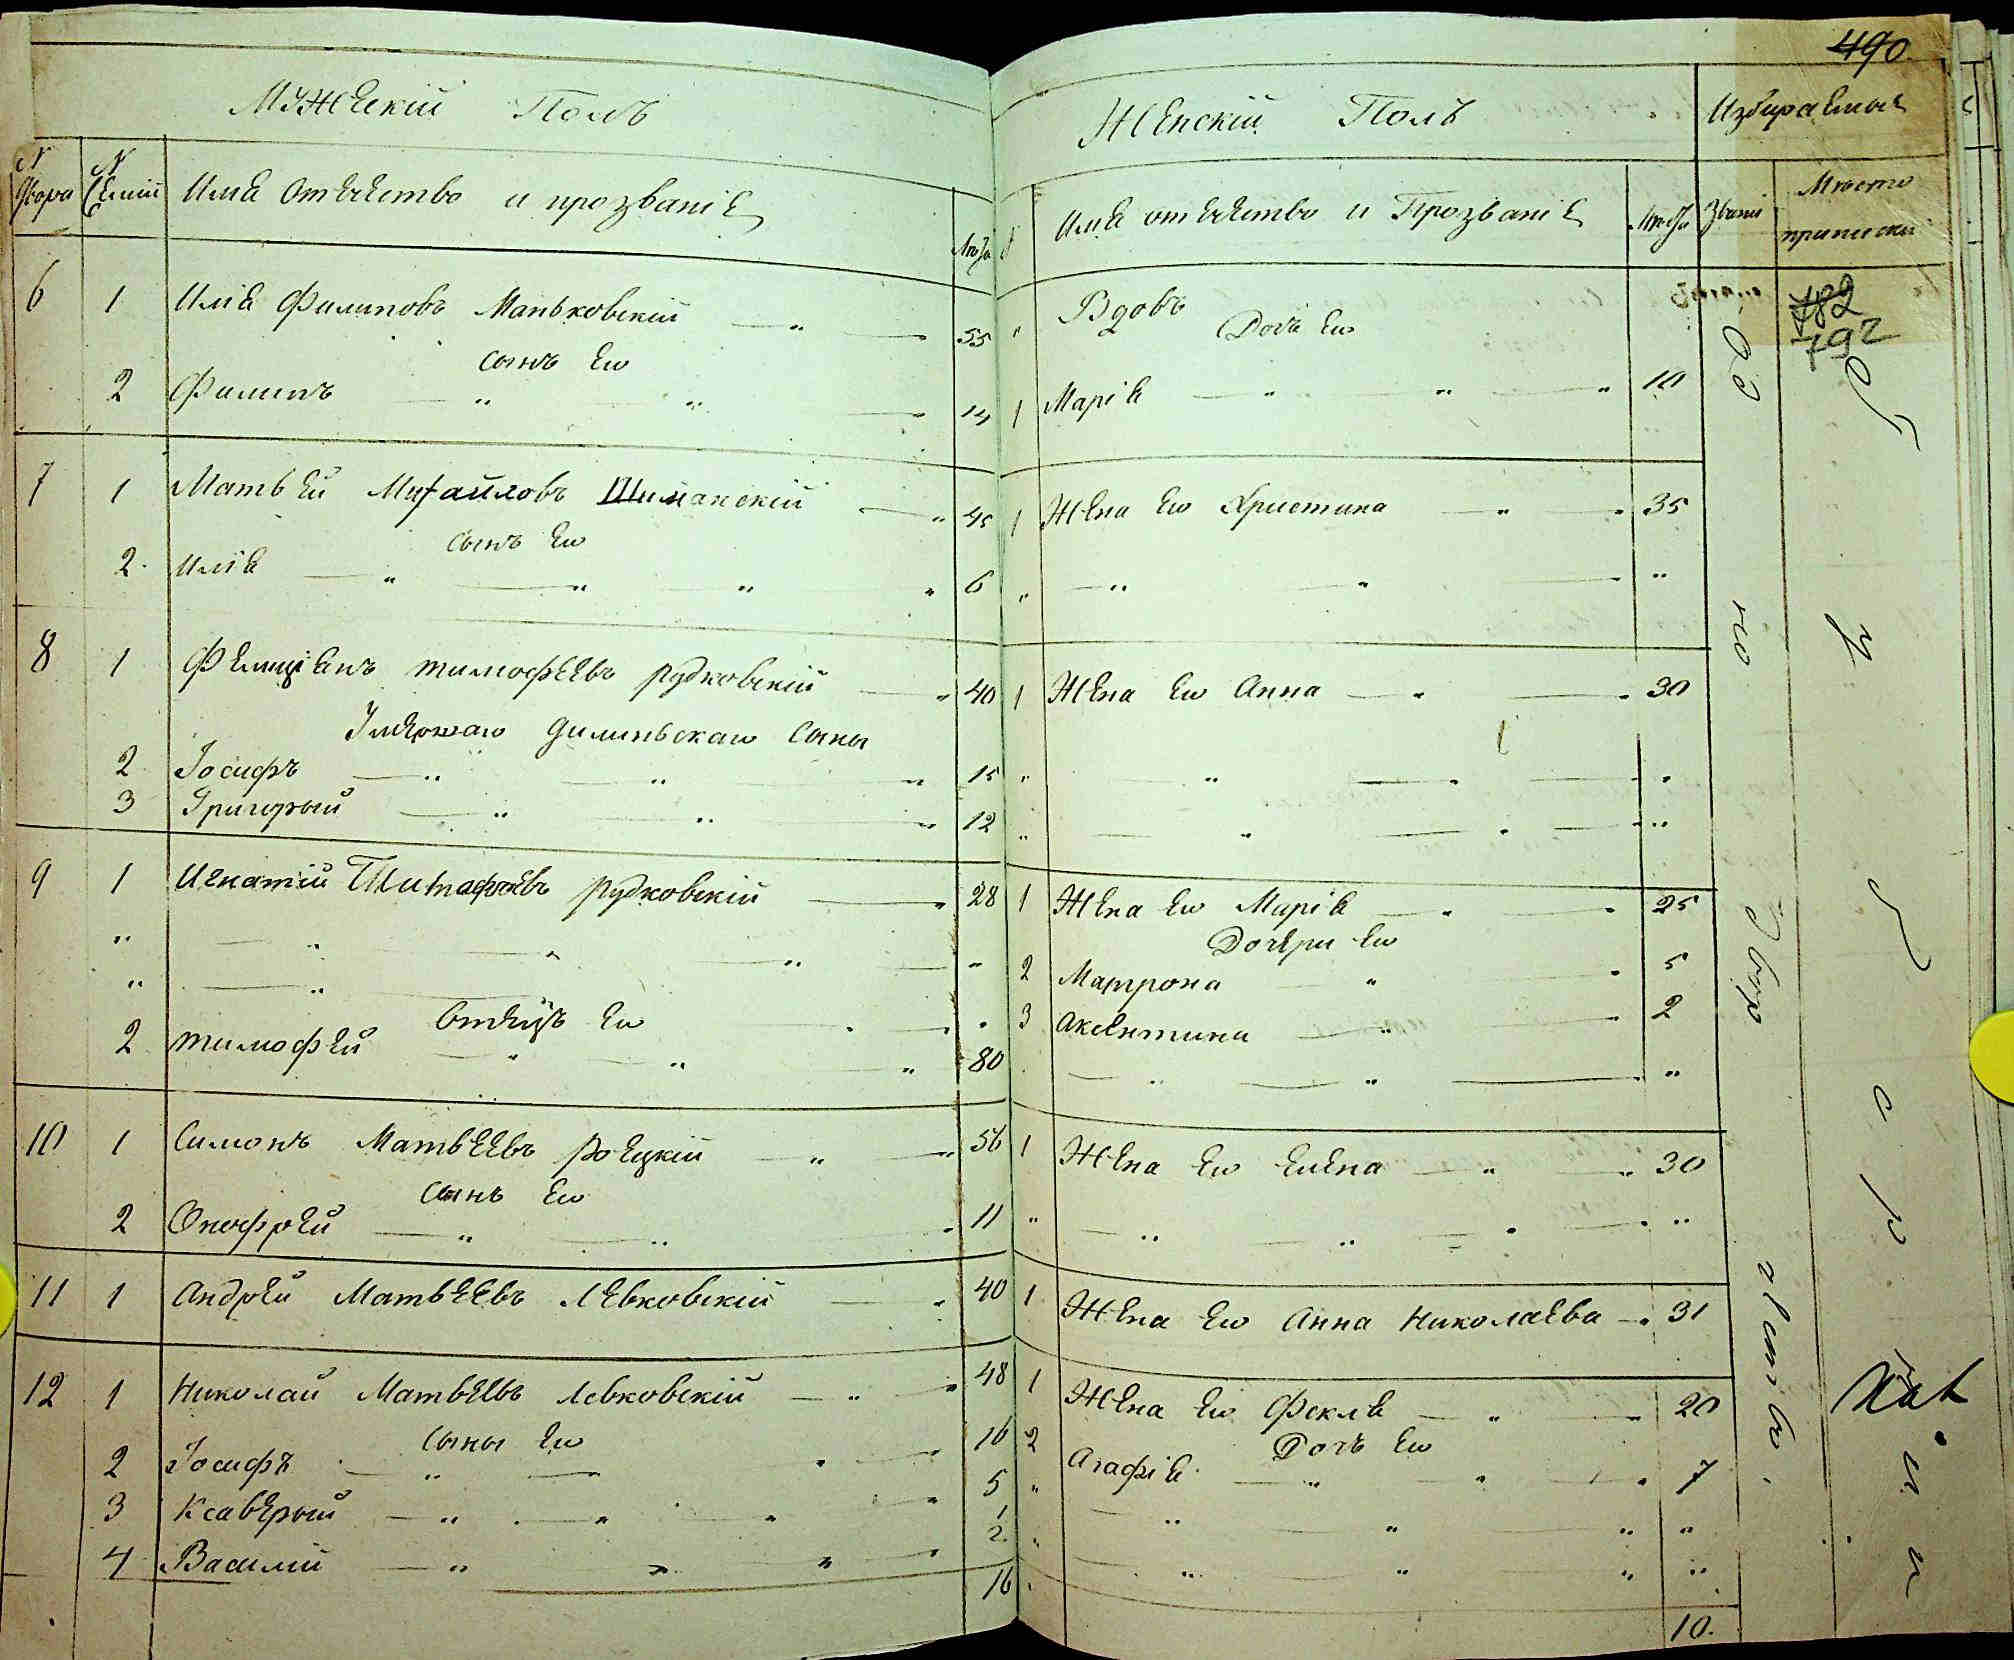 490.
Мужескій Полъ
№ Двора № Семій Имя отечество и прозваніе Лѣта
6 1 Илія Филиповъ Маньковскій — " — 55
сынъ Ею
2 Филипъ — " " — 14
7 1 Матвѣй Михайловъ Шиманскій — " 45
сынъ Ею
2. Илія — " — " " " 6
8 1 Фелиціянъ тимофеевъ рудковскій — " 40
Умершаю Филиньскаю сыны
2 Іосифъ — " — " — " 15
3 Григорый — " — " — " 12
9 1 Игнатій Тимафеевъ рудковскій — " 28
" — " — " " — "
" — " —
отецъ Ею
2 тимофей — " — " " 80
10 1 Симонъ Матвеевъ роецкій — " — " 56
сынъ Ею
2 Онофрей — " — " " 11
11 1 Андрей Матвеевъ Левковскій — " 40
12 1 Николай Матвеевъ Левковскій — " — " 48
сыны Ею
2 Іосифъ — " — " — 16
3 Ксаверый — " — " " — " 5
4 Василій — " " " — 1/2
16
Женскій Полъ Избираемыя
Имя отечество и Прозваніе Лѣта Званіи Место приписки
" Вдовъ 782
Дочь Ею 792
1 Марія — " — " — " 10
1 Жена Ею Христина — " — " 35
" — " — " — "
1 Жена Ею Анна — " — " 30
" — " — " — "
" — " — " — "
1 Жена Ею Марія — " — " 25
Дочери Ею
2 Матрона — " — " 5
3 Аксентина — " — " 2
— " — " — "
1 Жена Ею Елена — " — " 30
" — " — " — " — "
1 Жена Ею Анна Николаева — " 31
1 Жена Ею Фекла — " — " 20
Дочь Ею
2 Агафія — " — " — " 7
" — " — " " "
" — " — " " "
10.
Одно
Дворчество.